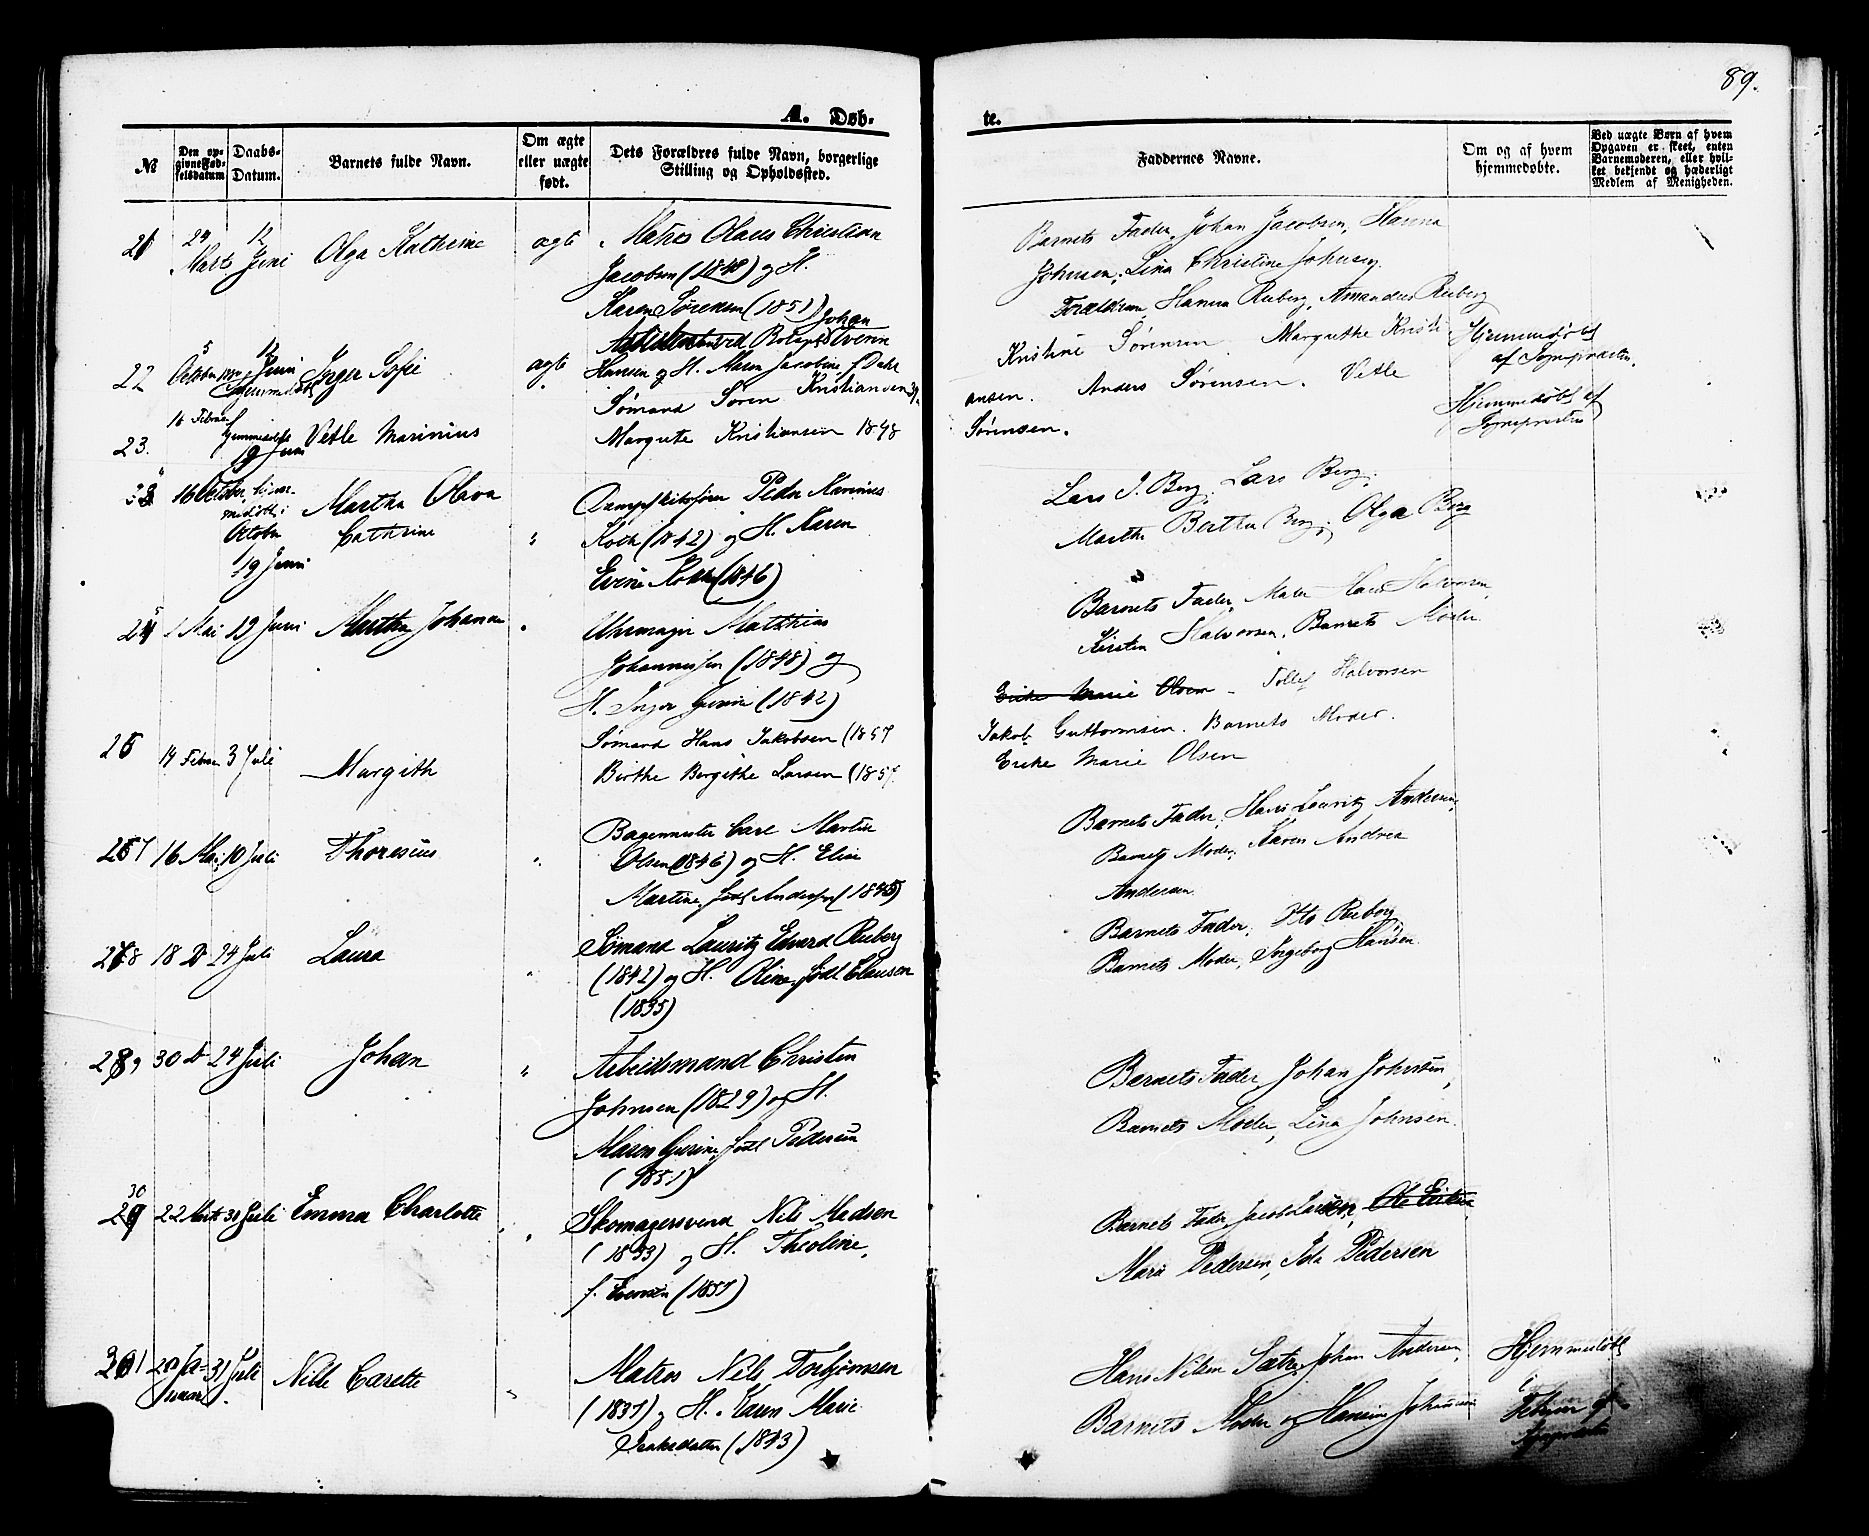 89.
A. Døb-
te.
№
Den op-
givne Fød-
selsdatum
Daabs-
Datum.
Barnets fulde Navn.
Om ægte
eller uægte
født.
Dets Forældres fulde Navn, borgerlige
Stilling og Opholdssted.
Faddernes Navne.
Om og af hvem
hjemmedøbte.
Ved uægte Børn af hvem
Opgaven er skeet, enten
Barnemoderen, eller hvil-
ket bekjendt og hæderligt
Medlem af Menigheden.
21
24
Marts
12
Juni
Olga Kathrine
ægte
Matros Olaus Christian
Jacobsen (1848) og H.
Karen Sørensen (1851)
Barnets Fader, Johan Jacobsen, Hanna
Johnsen, Lina Christine Johnsen.
22
5
12
Juni
Inger Sofie
ægte
Johan
Hansen og H. Maren Jacobine f. Dahl
Forældrene, Hanna Ruberg, Amandus Ruberg
Hjemmedøbt
af Sognepræsten.
23.
16 Februar
Hjemmedøbt
19 Juni
Vetle Marinius
Sømand Søren Kristiansen
Margrete Kristiansen 1848
Kristine Sørensen. Margrethe Kristi
ansen. Anders Sørensen. Vetle
Sørensen.
Hjemmedøbt af
Sognepræsten
16 October
October
19 Juni
Martha Olava
Cathrine
Dampskibsfører Peder Marinius
Koch (1842) og H. Karen
Evine Koch (1846)
Lars J. Berg, Lars Berg,
Marthe Berthea Berg, Olga Berg
Mai 19 Juni
Marthe Johanne
Uhrmager Matthias
Johannessen (1848) og
H. Inger Gurine (1842)
Barnets Fader, Hans Halvorsen,
Kirsten Halvorsen, Barnets Moder.
26
14 Februar 3 Juli
Margith
Sømand Hans Jakobsen (1857
Birthe Bergithe Larsen (1857.
Ereke Marie Olsen - Tollef Halvorsen
Jakob Guttormsen. Barnets Moder.
Ereke Marie Olsen
27
16 Mai 10 Juli
Thoresius
Bagermester Carl Martin
Olsen (1846) og H. Elise
Martine, født Andersen (1845)
Barnets Fader, Hans Lauritz Andersen,
Barnets Moder, Karen Andrea
Andersen.
28
18 Do 24 Juli
Laura
Sømand Lauritz Edvard Ruberg
(1842) og H. Oline, født Clausen
(1835)
Barnets Fader, Otto Ruberg
Barnets Moder, Ingeborg Hansen.
29
30 Do 24 Juli
Johan
Arbeidsmand Christen
Johnsen (1829) og H.
Maren Gurine, født Pedersen
(1851)
Barnets Fader, Johan Johnsen,
Barnets Moder, Lina Johnsen.
30
22 Marts 31 Juli
Emma Charlotte
Skomagersvend Nils Madsen
(1853) og H. Theoline,
f. Evensen (1857)
Barnets Fader, Jacob Larsen, Ole Eriksen
Mara Pedersen, Ida Pedersen
31
20 Ja-
nuar
31 Juli
Nille Carette
Matros Nils Torbjørnsen
(1837) og H. Karen Marie
Isaksdatter (1843)
Hans Nilsen Sætre, Johan Andersen,
Barnets Moder og Hansine Johansen
Hjemmedøbt
Februar af
Sognepræsten